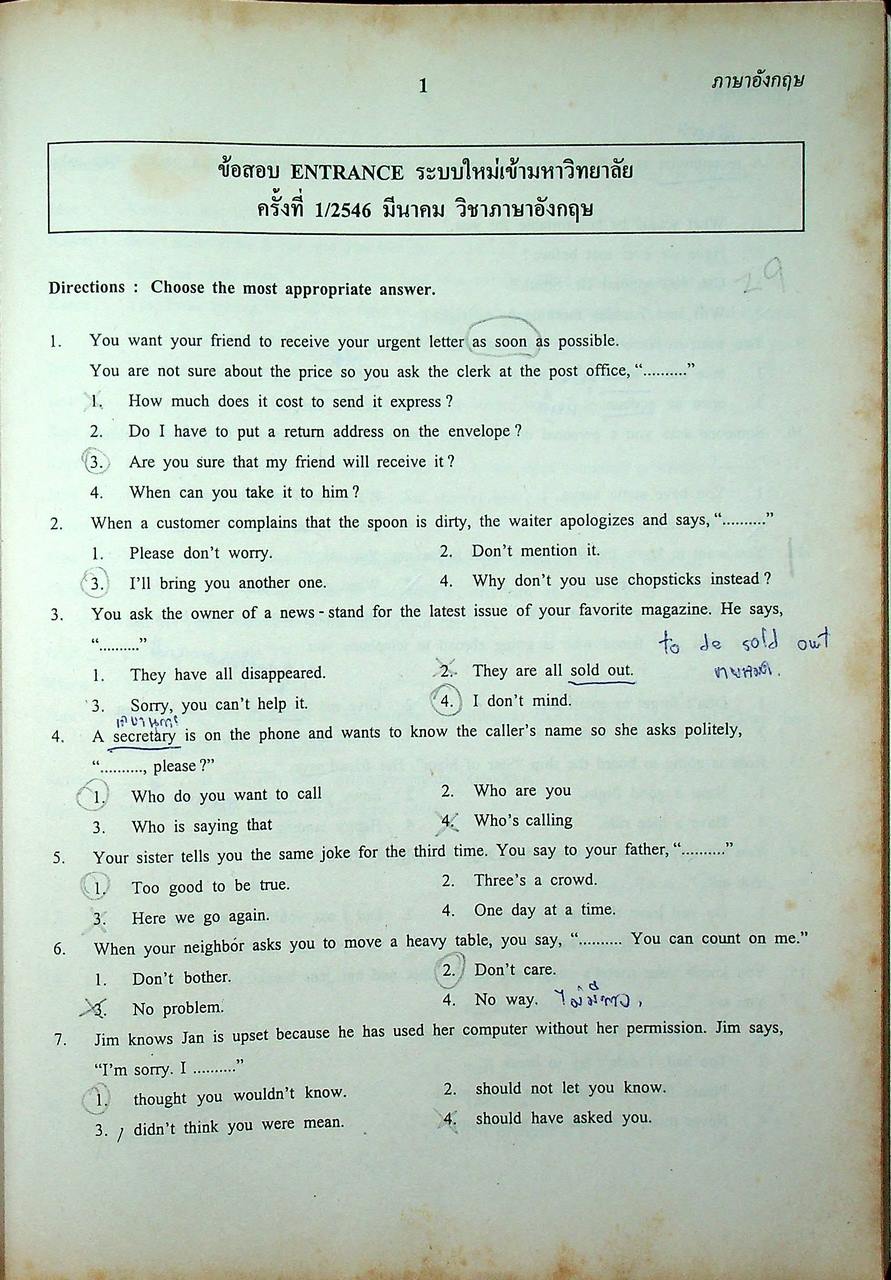 1
ภาษาอังกฤษ
ข้อสอบ ENTRANCE ระบบใหม่เข้ามหาวิทยาลัย
ครั้งที่ 1/2546 มีนาคม วิชาภาษาอังกฤษ
Directions : Choose the most appropriate answer.
29
1. You want your friend to receive your urgent letter as soon as possible.
You are not sure about the price so you ask the clerk at the post office, “..........”
1. How much does it cost to send it express ?
2. Do I have to put a return address on the envelope ?
3. Are you sure that my friend will receive it ?
4. When can you take it to him ?
2. When a customer complains that the spoon is dirty, the waiter apologizes and says, “..........”
1. Please don’t worry. 2. Don’t mention it.
3. I’ll bring you another one. 4. Why don’t you use chopsticks instead ?
3. You ask the owner of a news - stand for the latest issue of your favorite magazine. He says,
“..........” to be sold out
1. They have all disappeared. 2. They are all sold out. ขายหมด.
3. Sorry, you can’t help it. 4. I don’t mind.
เลขานุการ
4. A secretary is on the phone and wants to know the caller’s name so she asks politely,
“.........., please ?”
1. Who do you want to call 2. Who are you
3. Who is saying that 4. Who’s calling
5. Your sister tells you the same joke for the third time. You say to your father, “..........”
1. Too good to be true. 2. Three’s a crowd.
3. Here we go again. 4. One day at a time.
6. When your neighbor asks you to move a heavy table, you say, “.......... You can count on me.”
1. Don’t bother. 2. Don’t care.
3. No problem. 4. No way. ไม่มีทาง,
7. Jim knows Jan is upset because he has used her computer without her permission. Jim says,
“I’m sorry. I ..........”
1. thought you wouldn’t know. 2. should not let you know.
3. didn’t think you were mean. 4. should have asked you.